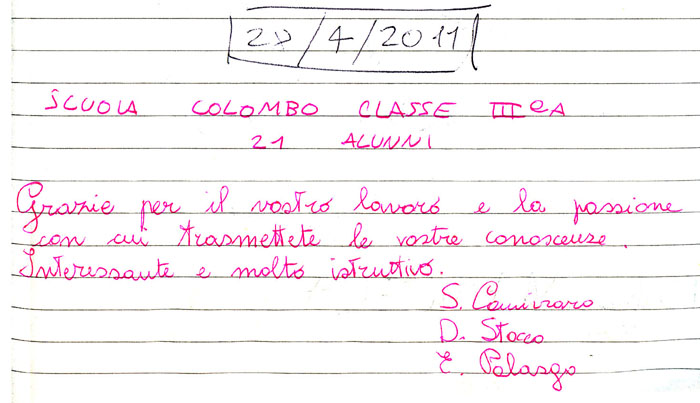 28/4/2011
SCUOLA COLOMBO CLASSE III eA
21 ALUNNI
Grazie per il vostro lavoro e la passione
con cui trasmettete le vostre conoscenze.
Interessante e molto istruttivo.
S.
D. Stocco
E. Palasgo